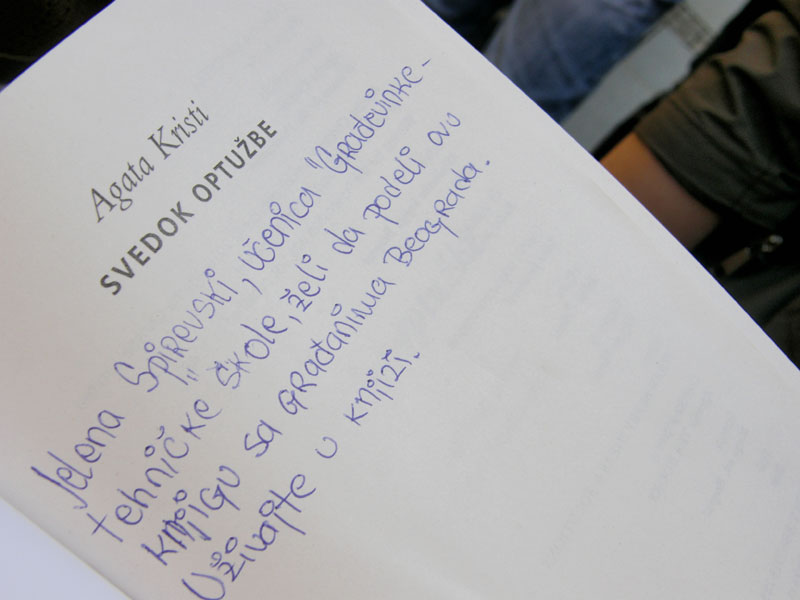 Agata Kristi
SVEDOK OPTUŽBE
Jelena Spirevski, učenica "Građevinke-
tehničke škole", želi da podeli ovu
knjigu sa građanima Beograda.
Uživajte u knjizi.